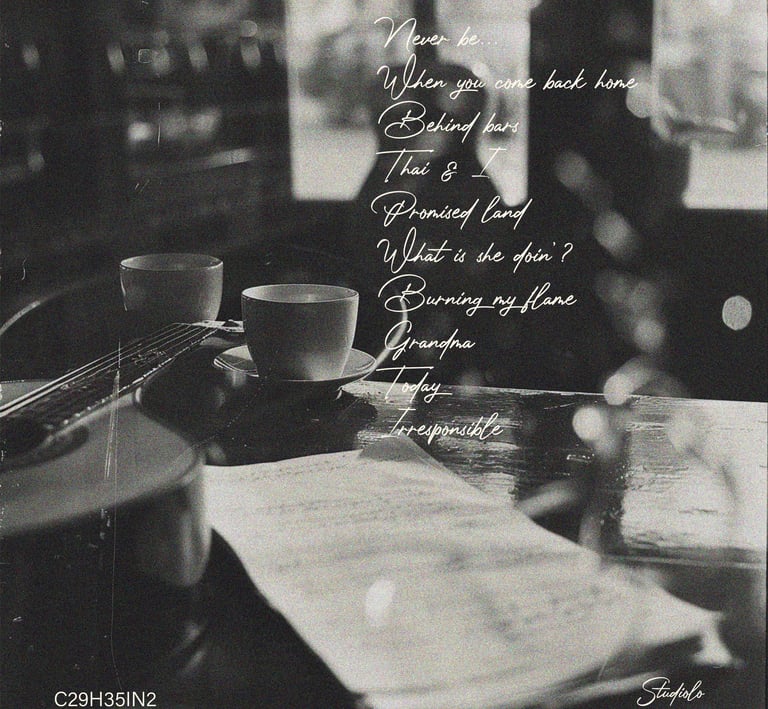 Never be...
When you come back home
Behind bars
Thai & I
Promised land
What is she doin'?
Burning my flame
Grandma
Today
Irresponsible
C29H35IN2
Studiolo